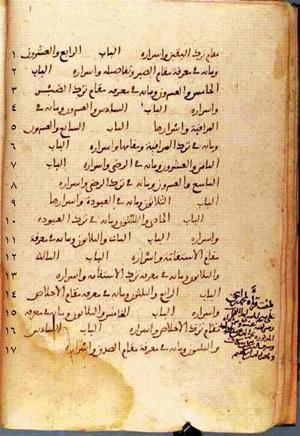 ١ مقام ترك اليقين واسراره الباب الرابع والعشرون
٢ ومايه في معرفة مقام الصبر وتفاصيله واسراره الباب
٣ الخامس والعشرون ومايه في معرفة مقام ترك الصبر
٤ واسراره الباب السادس والعشرون ومايه في
٥ المراقبة واسرارها الباب السابع والعشرون
٦ ومايه في ترك المراقبة ومقامها واسراره الباب
٧ الثامن والعشرون ومايه في الرضى واسراره الباب
٨ التاسع والعشرون ومايه في ترك الرضى واسراره
٩ الباب الثلاثون ومايه في العبودة واسرارها
١٠ الباب الحادي والثلثون ومايه في ترك العبودة
١١ واسراره الباب الثاني والثلاثون ومايه في معرفة
١٢ مقام الاستقامة واسراره الباب الثالث
١٣ والثلاثون ومايه في معرفة ترك الاستقامة واسراره
١٤ الباب الرابع والثلاثون ومايه في معرفة مقام الاخلاص
١٥ واسراره الباب الخامس والثلاثون ومايه في معرفة
١٦ مقام ترك الاخلاص واسراره الباب السادس
١٧ والثلاثون ومايه في معرفة مقام الصدق واسراره